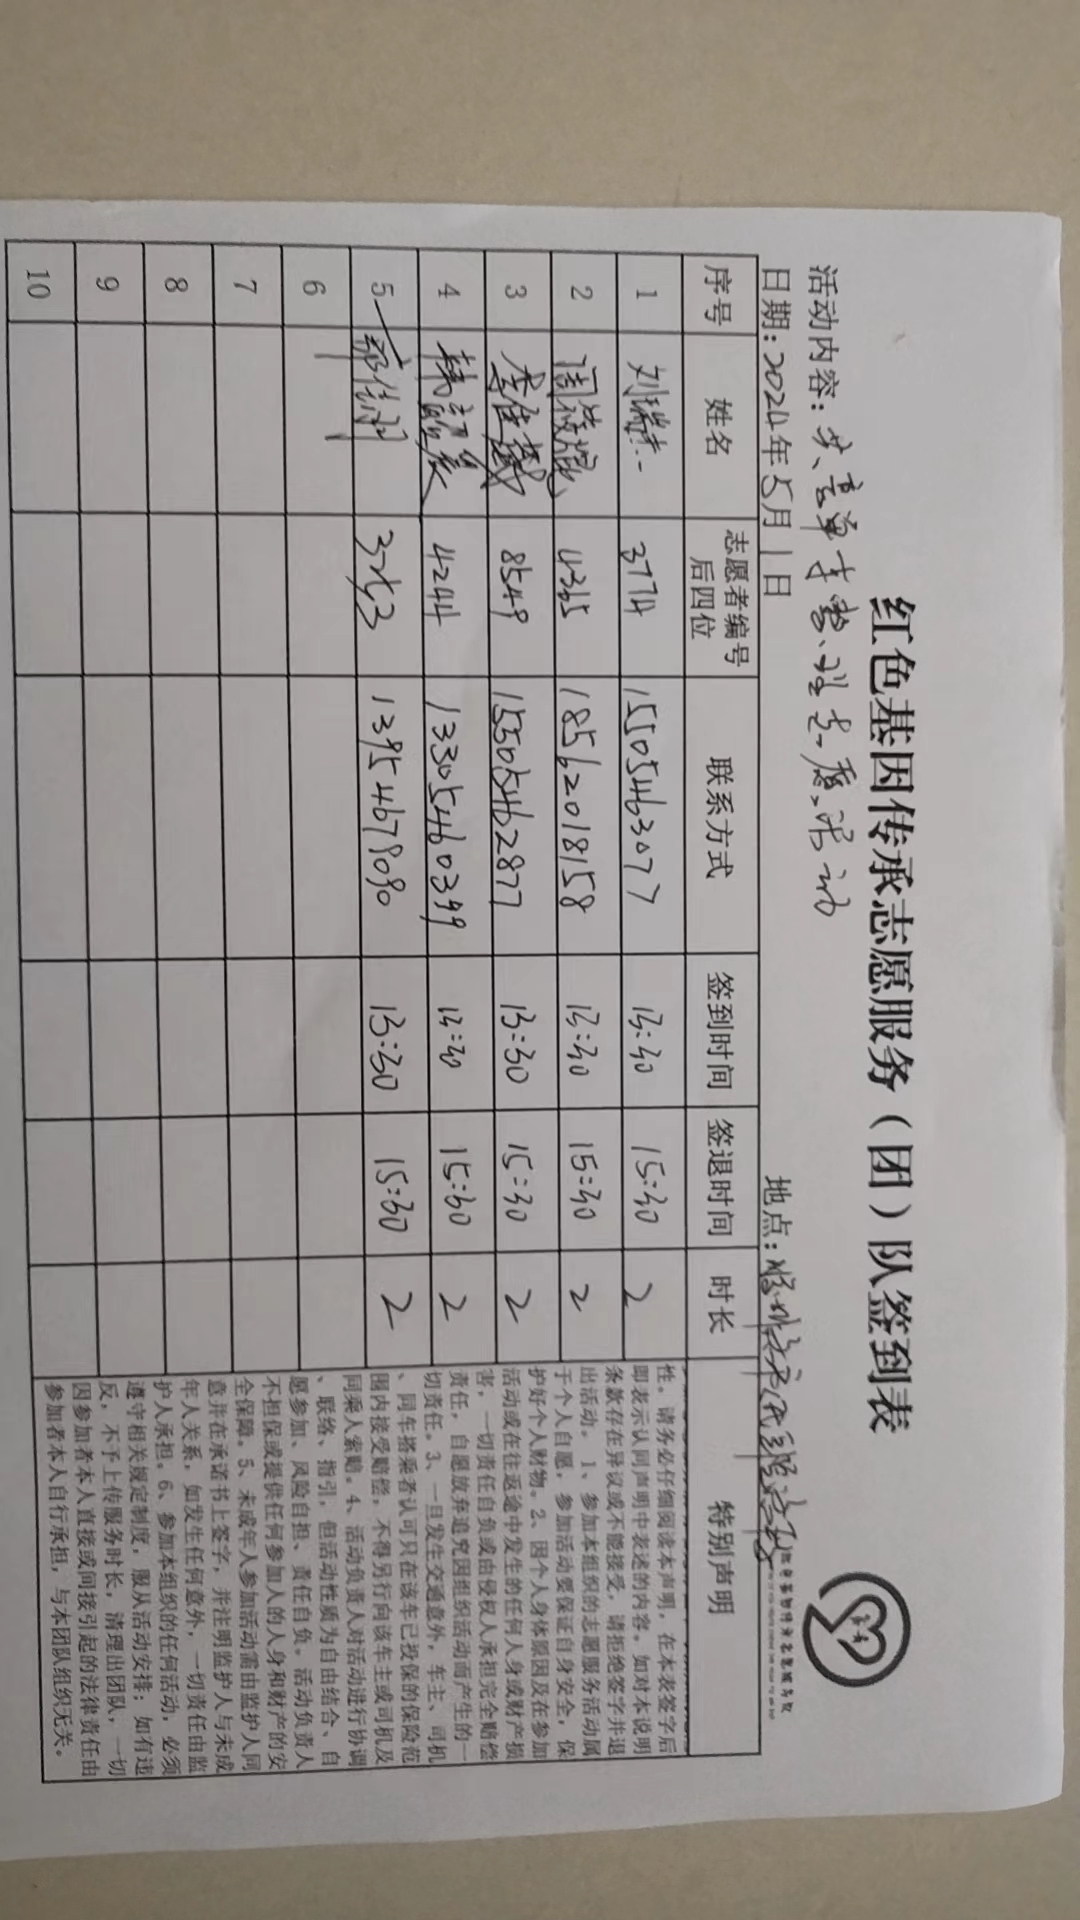 红色基因传承志愿服务（团）队签到表
活动内容：共享单车整理志愿活动
日期：2024年5月1日 地点：
序号 姓名 志愿者编号后四位 联系方式 签到时间 签退时间 时长 特别声明
1 刘瑞 3774 1505463077 13:30 15:30 2
2 周筱焜 4365 18562018158 13:30 15:30 2
3 李佳 8549 15505462877 13:30 15:30 2
4 韩 4244 13305460399 13:30 15:30 2
5 3253 13954679090 13:30 15:30 2
6
7
8
9
10
性。请务必仔细阅读本声明，在本表签字后
即表示认同声明中表述的内容。如对本说明
条款存在异议或不能接受，请拒绝签字并退
出活动。1、参加本组织的志愿服务活动属
于个人自愿，参加活动要保证自身安全，保
护好个人财物。2、因个人身体原因及在参加
活动或在往返途中发生的任何人身或财产损
害，一切责任自负或由侵权人承担完全赔偿
责任，自愿放弃追究因组织活动而产生的一
切责任。3、一旦发生交通意外，车主、司机
、同车搭乘者认可只在该车已投保的保险范
围内接受赔偿，不得另行向该车主或司机及
同乘人索赔。4、活动负责人对活动进行协调
、联络、指引，但活动性质为自由结合、自
愿参加、风险自担、责任自负。活动负责人
不担保或提供任何参加人的人身和财产的安
全保障。5、未成年人参加活动需由监护人同
意并在承诺书上签字，并注明监护人与未成
年人关系，如发生任何意外，一切责任由监
护人承担。6、参加本组织的任何活动，必须
遵守相关规定制度，服从活动安排；如有违
反，不予上传服务时长，清理出团队，一切
因参加者本人直接或间接引起的法律责任由
参加者本人自行承担，与本团队组织无关。